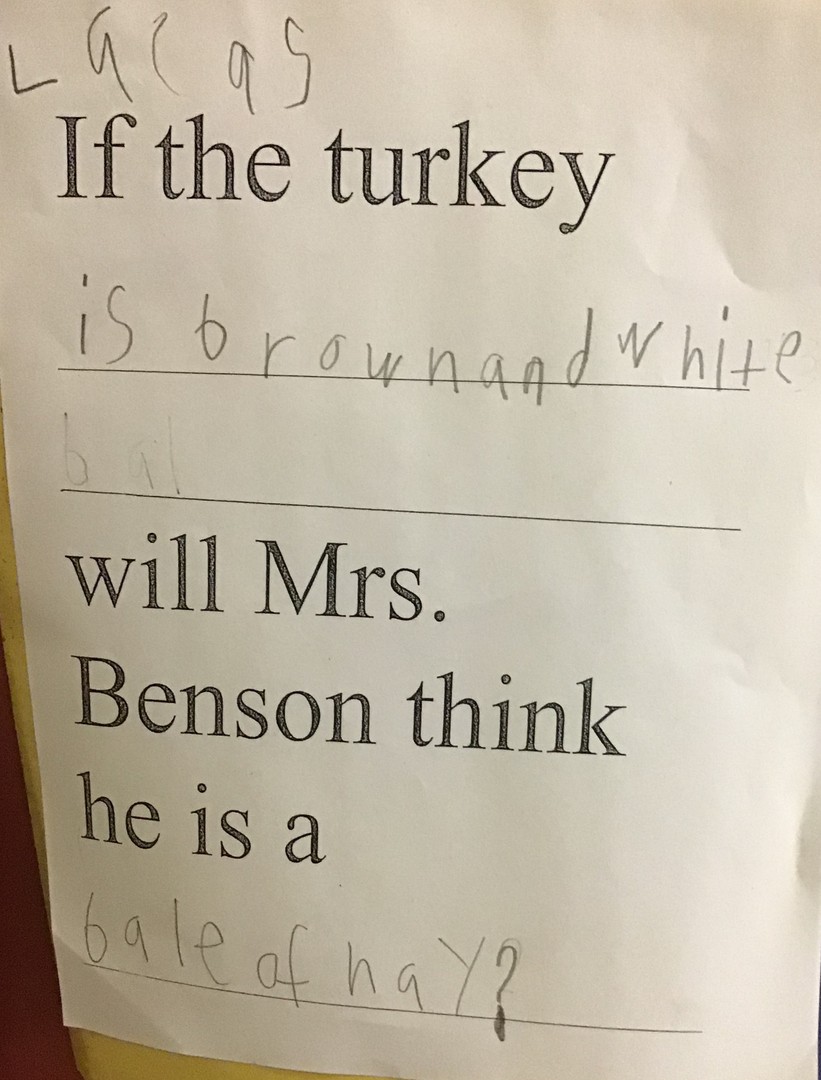 Lacas
If the turkey
is brown and white
bal
will Mrs.
Benson think
he is a
bale of hay?